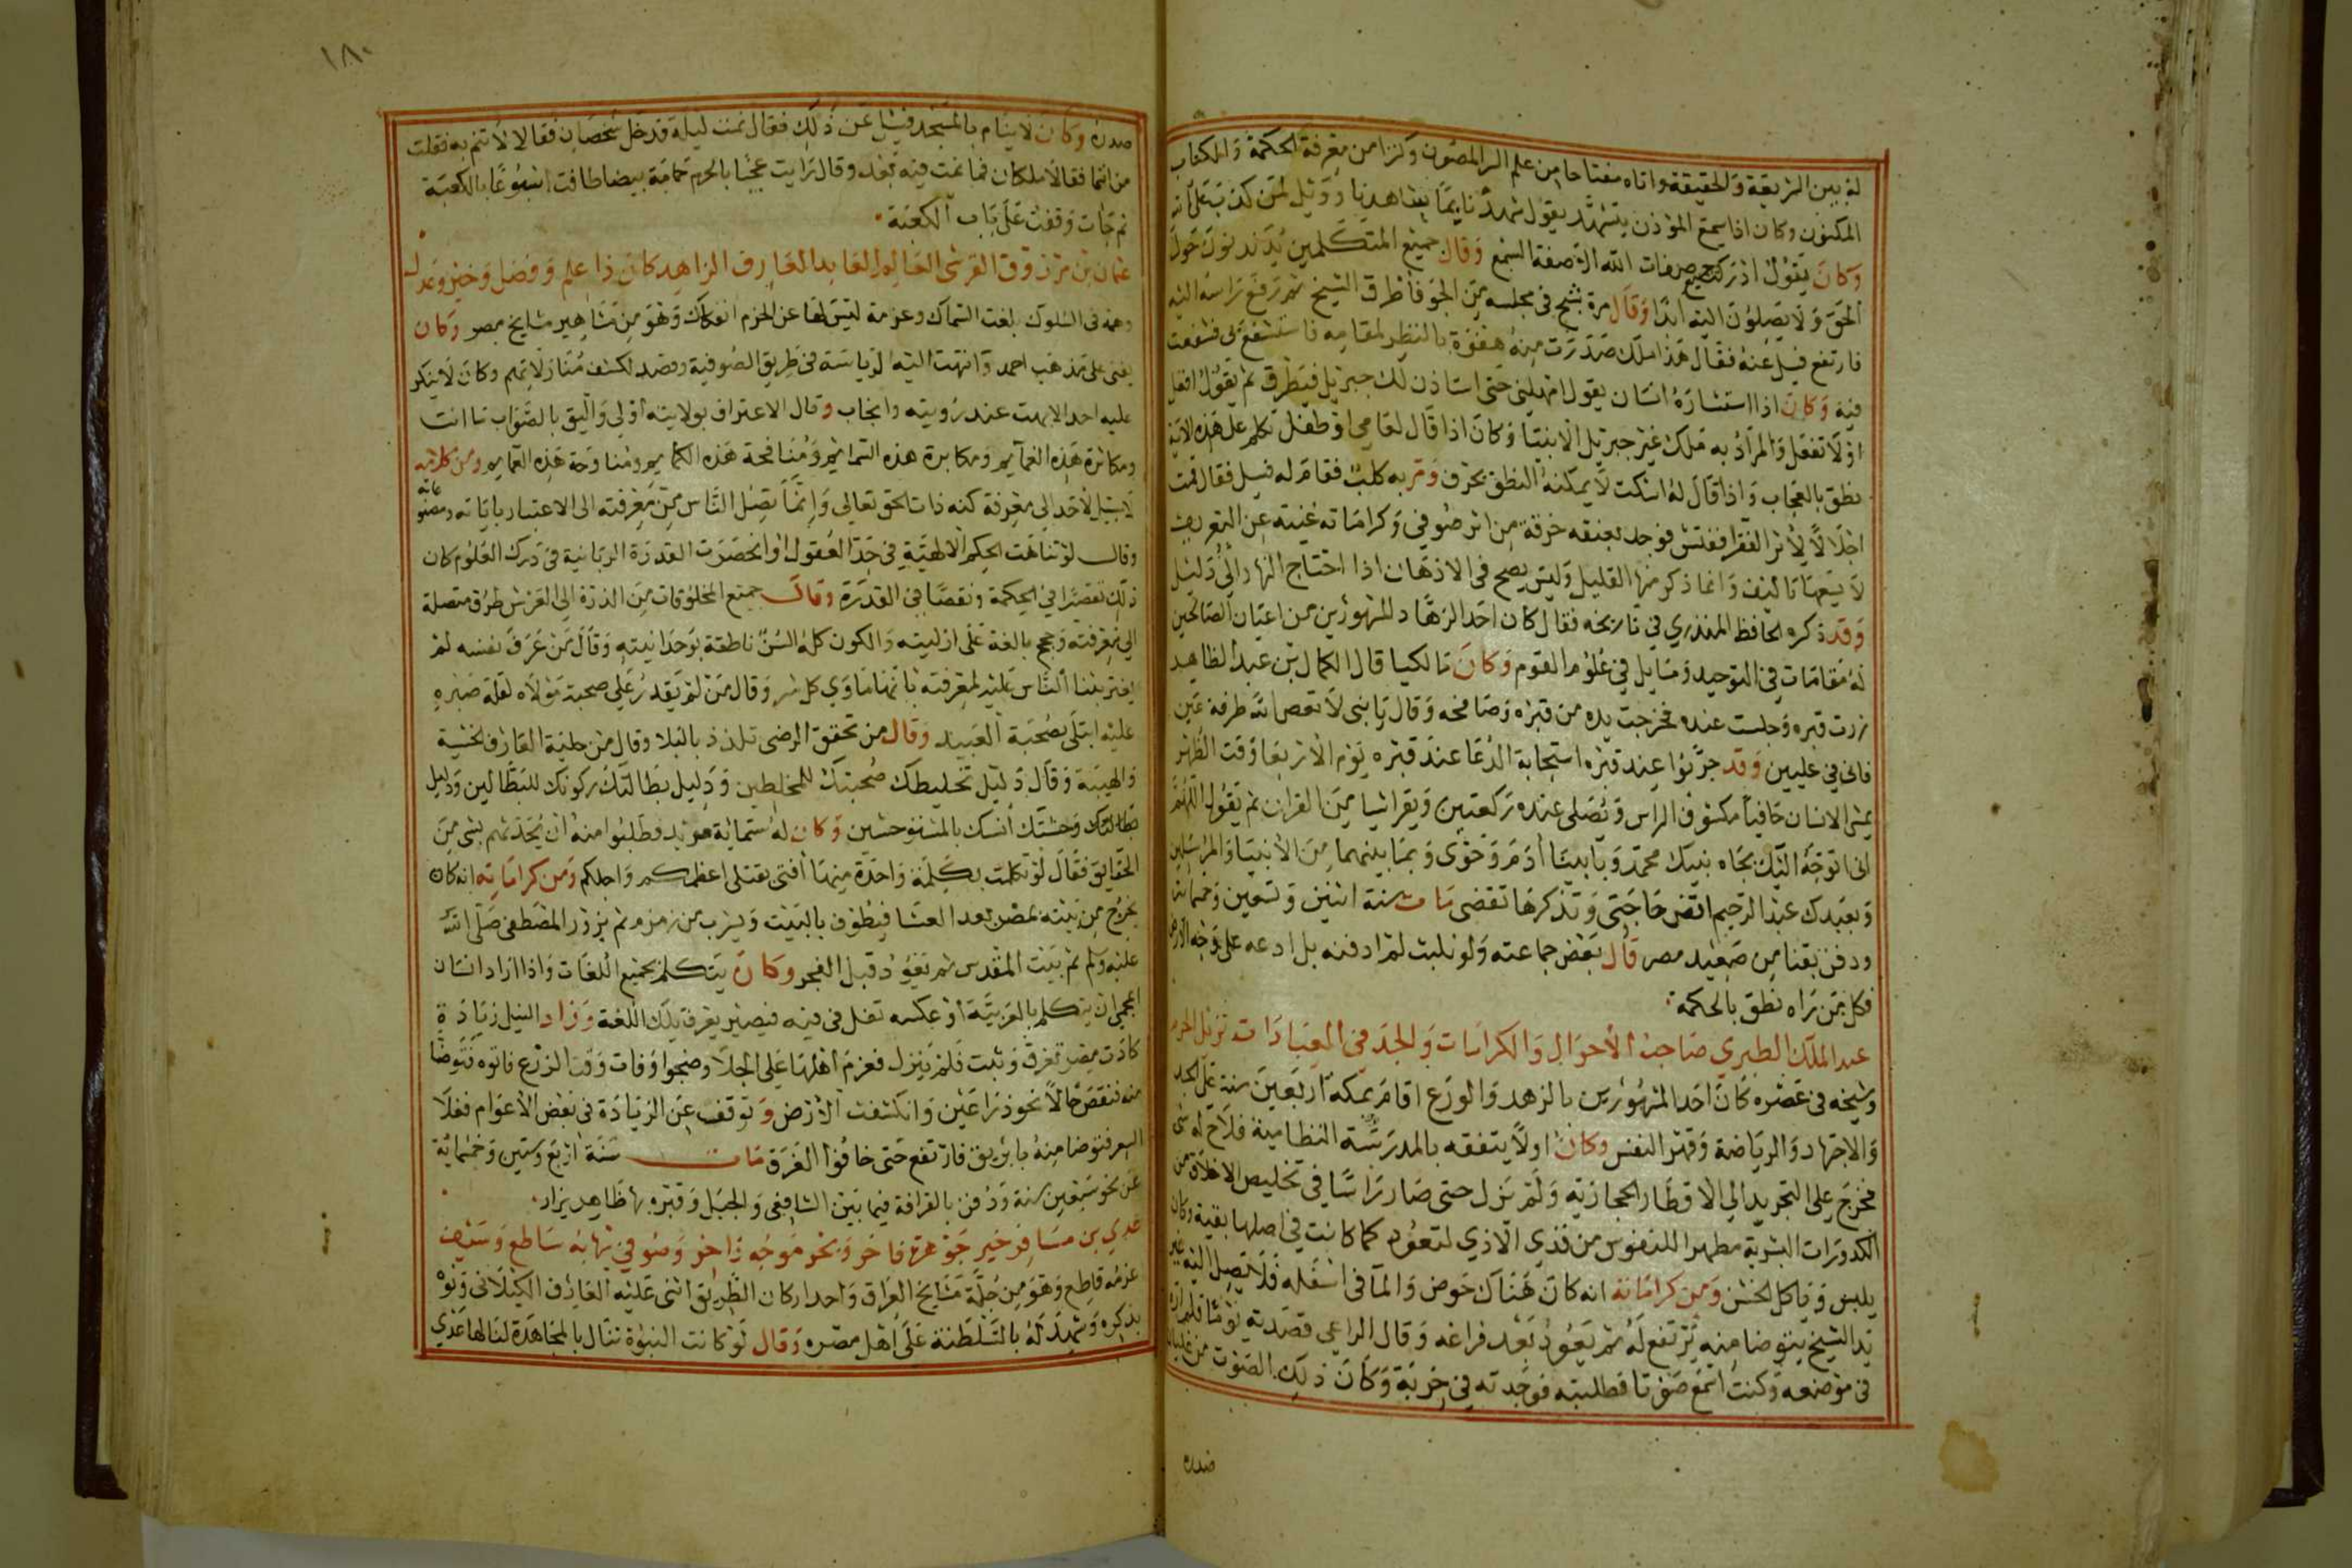 له بين الشريعة والحقيقة واتاه مفتاحا من علم السر المصون وكنزا من معرفة الحكمة والكتاب
المكنون وكان اذا سمع المؤذن يتشهد يقول شهدنا بما شاهدنا وويل لمن كذب على الله
وكان يقول ادركت جميع صفات الله الا صفة السمع وقال جميع المتكلمين يدندنون حول
الحق ولا يصلون اليه ابدا وقال مرة شبح في مجلسه من الجو فأطرق الشيخ ثم رفع راسه اليه
فارتفع فسئل عنه فقال هذا ملك صدرت منه هفوة بالنظر لمقامه فاستشفع بي فشفعت
فيه وكان اذا استشاره انسان يقول امهلني حتى استاذن لك جبريل فيطرق ثم يقول افعل
او لا تفعل والمراد به ملك غير جبريل الانبيا وكان اذا قال لعامي او طفل تكلم على هذه الاية
نطق بالعجاب واذا قال له اسكت لا يمكنه النطق بحرف ومر به كلب فقام له فسئل فقال قمت
اجلالا لاثر الفقرا ففتش فوجد بعنقه خرقة من اثر صوفي وكراماته غنية عن التعريف
لا يسعها تاليف وانما ذكر منها القليل وليس يصح في الاذهان اذا احتاج النهار الى دليل
وقد ذكره الحافظ المنذري في تاريخه فقال كان احد الزهاد المشهورين من اعيان الصالحين
له مقامات في التوحيد ومسايل في علوم القوم وكان مالكيا قال الكمال بن عبد الظاهر
زرت قبره وجلست عنده فخرجت يده من قبره وصافحه وقال يا بني لا تعص الله طرفة عين
فاني في عليين وقد جربوا عند قبره استجابة الدعا عند قبره يوم الاربعا وقت الظهر
يمشي الانسان حافيا مكشوف الراس ويصلي عنده ركعتين ويقرا شيا من القران ثم يقول اللهم
اني اتوجه اليك بجاه نبيك محمد وبابينا أدم وحوى وبما بينهما من الانبيا والمرسلين
وبعبدك عبد الرحيم اقض حاجتي وتذكرها تقضى مات سنة اثنين وتسعين وخمماية
ودفن بقنا من صعيد مصر قال بعض جماعته ولو نلبث لم ادفنه بل ادعه على وجه الارض
فكل من راه نطق بالحكمة
عبد الملك الطبري صاحب الأحوال والكرامات والجد في العبادات نزيل الحرم
وشيخه في عصره كان احد المشهورين بالزهد والورع اقام بمكة اربعين سنة على الجد
والاجتهاد والرياضة وقهر النفس وكان اولا يتفقه بالمدرسة النظامية فلاح له شي
فخرج على التجريد الى الاقطار الحجازية ولم يزل حتى صار راسا في تخليص الاخلاق من
الكدورات البشرية مطهرا للنفوس من قذي الاذي لتعود كما كانت في اصلها بقية وكان
يلبس وياكل الخشن ومن كراماته انه كان هناك حوض والما في اسفله فلا تصل اليه
يد الشيخ يتوضا منه يرتفع له ثم يعود بعد فراغه وقال الراعي قصدته يوما فلم اره
في موضعه وكنت اسمع صوتا فطلبته فوجدته في خربة وكان ذلك الصوت من غليان
صدره
١٨٠
صدره وكان لا ينام بالمسجد فسئل عن ذلك فقال نمت ليلة فدخل شخصان فقالا لا تنم به فقلت
من انتما فقالا ملكان فما نمت فيه بعد وقال رايت عجبا بالحرم حمامة بيضا طافت اسبوعا بالكعبة
ثم جات وقفت على باب الكعبة
عثمان بن مرزوق القرشي العالم العابد العارف الزاهد كان ذا علم وفضل وخير وعدل
وهمة في السلوك بلغت السماك وعزمة ليس لها عن الحزم انفكاك وهو من مشاهير مشايخ مصر وكان
يفتي على مذهب احمد وانتهت اليه الرياسة في طريق الصوفية وقصد لكشف منازلاتهم وكان لا ينكر
عليه احد الا بهت عند رؤيته وانجاب وقال الاعتراف بولايته اولى واليق بالصواب ما انت
ومكاثرة هذه الغمايم ومكابرة هذه السمايم ومنافحة هذه الكمايم ومناوحة هذه الحمايم ومن كلامه
لا سبيل لاحد الى معرفة كنه ذات الحق تعالى وانما تصل الناس من معرفته الى الاعتبار باياته ومصنوعاته
وقال لو تناهت الحكم الالهية في حد العقول او انحصرت القدرة الربانية في درك العلوم كان
ذلك تقصيرا في الحكمة ونقصا في القدرة وقال جميع المخلوقات من الذرة الى العرش طرق متصلة
الى معرفته وحجج بالغة على ازليته والكون كله السن ناطقة بوحدانيته وقال من عرف نفسه لم
يغتر بثنا الناس عليه لمعرفته بانها ماوي كل شر وقال من لم يقدر على صحبة مولاه لقلة صبره
عليه ابتلى بصحبة العبيد وقال من تحقق الرضى تلذذ بالبلا وقال من حلية العارف الخشية
والهيبة وقال دليل تخليطك صحبتك للمخلطين ودليل بطالتك ركونك للبطالين ودليل
وحشتك أنسك بالمستوحشين وكان له ستماية مريد فطلبوا منه ان يحدثهم بشي من
الحقايق فقال لو تكلمت بكلمة واحدة منها أفتى بقتلي اعظمكم واجلكم ومن كراماته انه كان
يخرج من بيته بمصر بعد العشا فيطوف بالبيت ويشرب من زمزم ثم يزور المصطفى صلى الله
عليه وسلم ثم بيت المقدس ثم يعود قبل الفجر وكان يتكلم بجميع اللغات واذا اراد انسان
اعجمي ان يتكلم بالعربية أو عكسه تفل في فيه فيصير يعرف تلك اللغة وزاد النيل زيادة
كادت مصر تغرق وثبت فلم ينزل فعزم اهلها على الجلا وضجوا وفات وقت الزرع فاتوه فتوضا
منه فنقص حالا نحو ذراعين وانكشفت الارض وتوقف عن الزيادة في بعض الاعوام فغلا
السعر فتوضا منه بابريق فارتفع حتى خافوا الغرق مات سنة اربع وستين وخمماية
عن نحو سبعين سنة ودفن بالقرافة فيما بين الشافعي والجبل وقبره بها ظاهر يزار
عدي بن مسافر خير جوهرة فاخر وبحر موجه زاخر وضو في نهايه ساطع وسيف
عزمه قاطع وهو من جلة مشايخ العراق واحد اركان الطريق اثنى عليه العارف الكيلاني ونوه
بذكره وشهد له بالسلطنة على أهل عصره وقال لو كانت النبوة تنال بالمجاهدة لنالها عدي